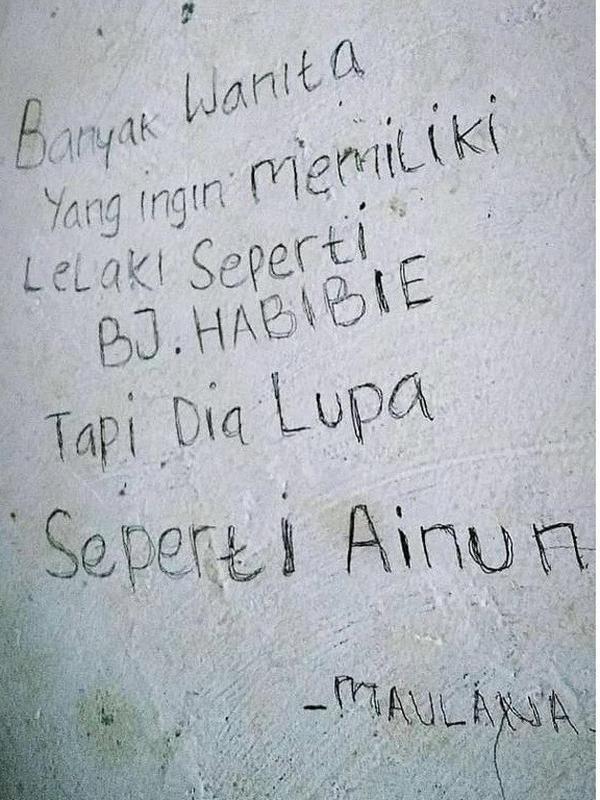 Banyak Wanita
Yang ingin Memiliki
LeLaki Seperti
BJ. HABIBIE
Tapi Dia Lupa
Seperti Ainun
-MAULANA.